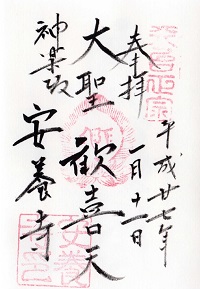 奉拝
平成廿七年
一月十一日
大聖歓喜天
神楽坂
安養寺